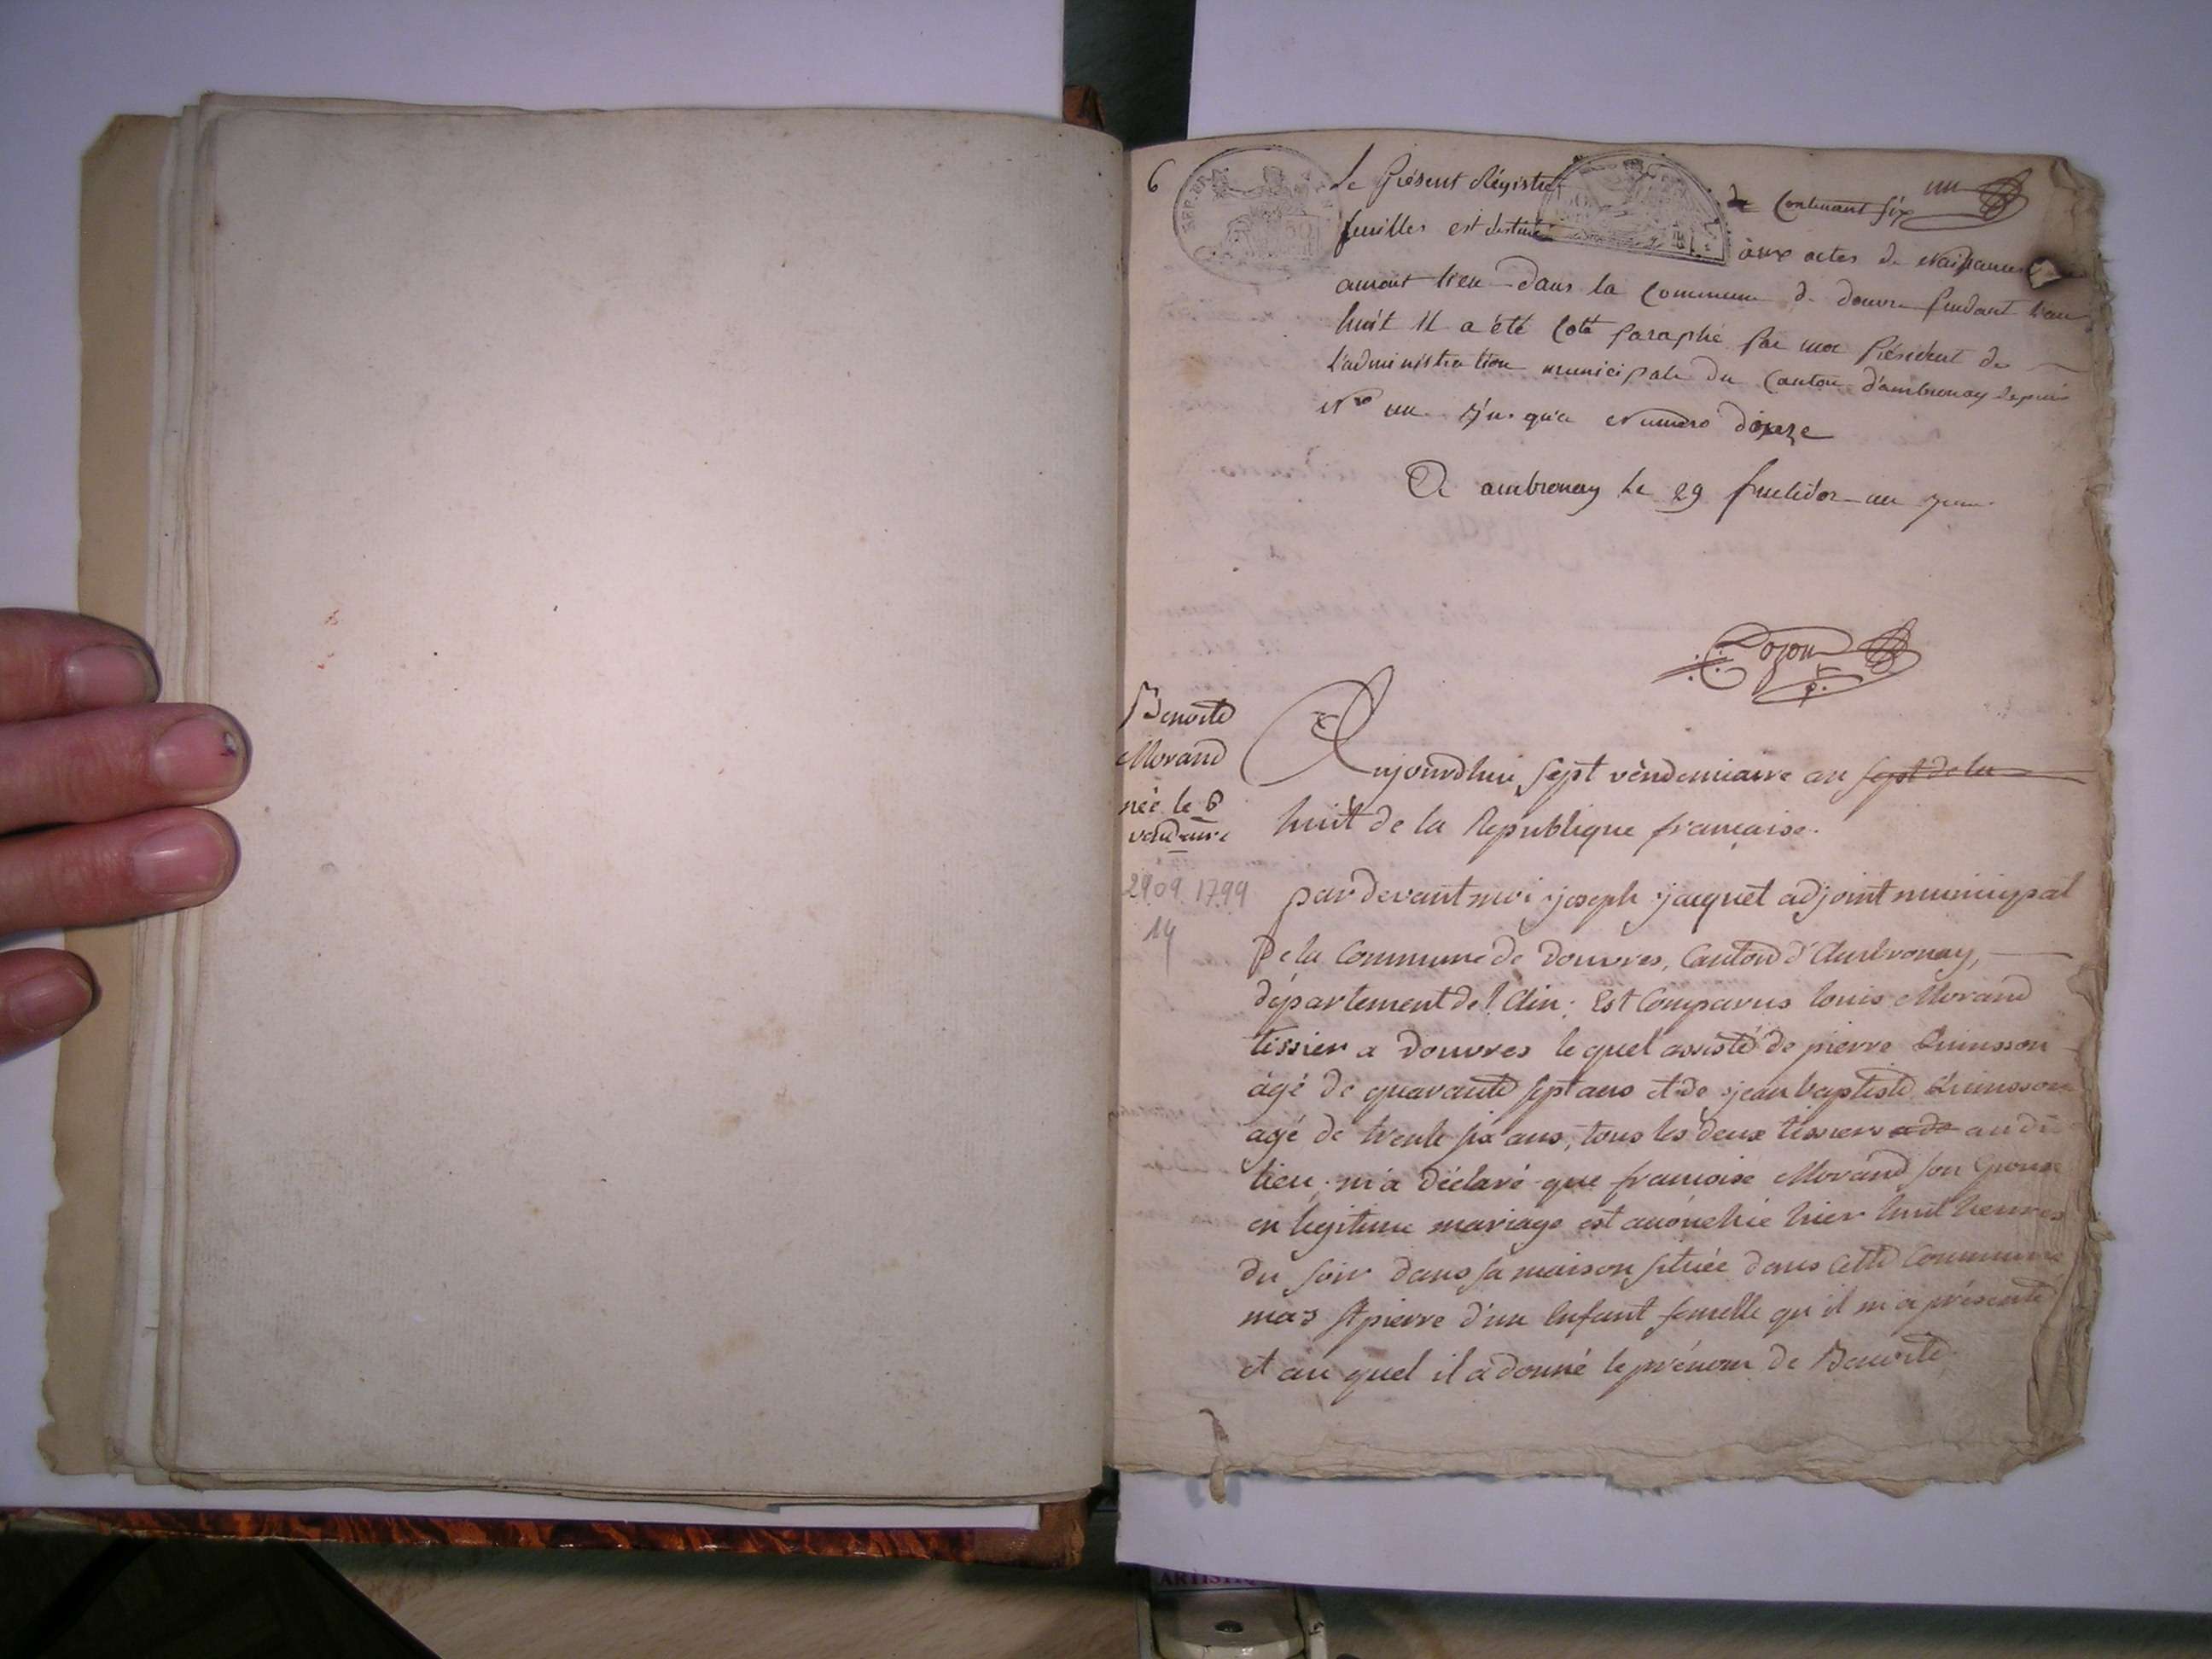 6
un
Le Présent Régistre de Contenant six
feuilles est destiné aux actes de Naissances
auront lieu dans la Commune de douvre pendant l'an
huit Il a été coté paraphé par moi Président de
l'administration municipale du Canton d'ambronay depuis
N.ro un jusqu'a Numero douze
A ambronay le 29 fructidor an 7
Benoite
Morand
née le 6
vend.aire
29.09.1799
14
Aujourdhui sept vendemiaire an sept de la
huit de la Republique française.
par devant moi joseph jacquet adjoint municipal
De la Commune de Douvres, Canton d'Ambronay,
département de l'Ain; Est Comparus louis Morand
tissier a Douvres lequel assisté de pierre Quinsson
âgé de quarante sept ans et de jean baptiste Quinsson
agé de trente six ans, tous les deux tissiers a do audi
lieu, m'a déclaré que françoise Morand son Epouse
en legitime mariage est accouchée hier huit heures
du soir dans sa maison située dans cette Commune
mas St pierre d'un Enfant femelle qu'il m'a présenté
et au quel il a donné le prénom de Benoite